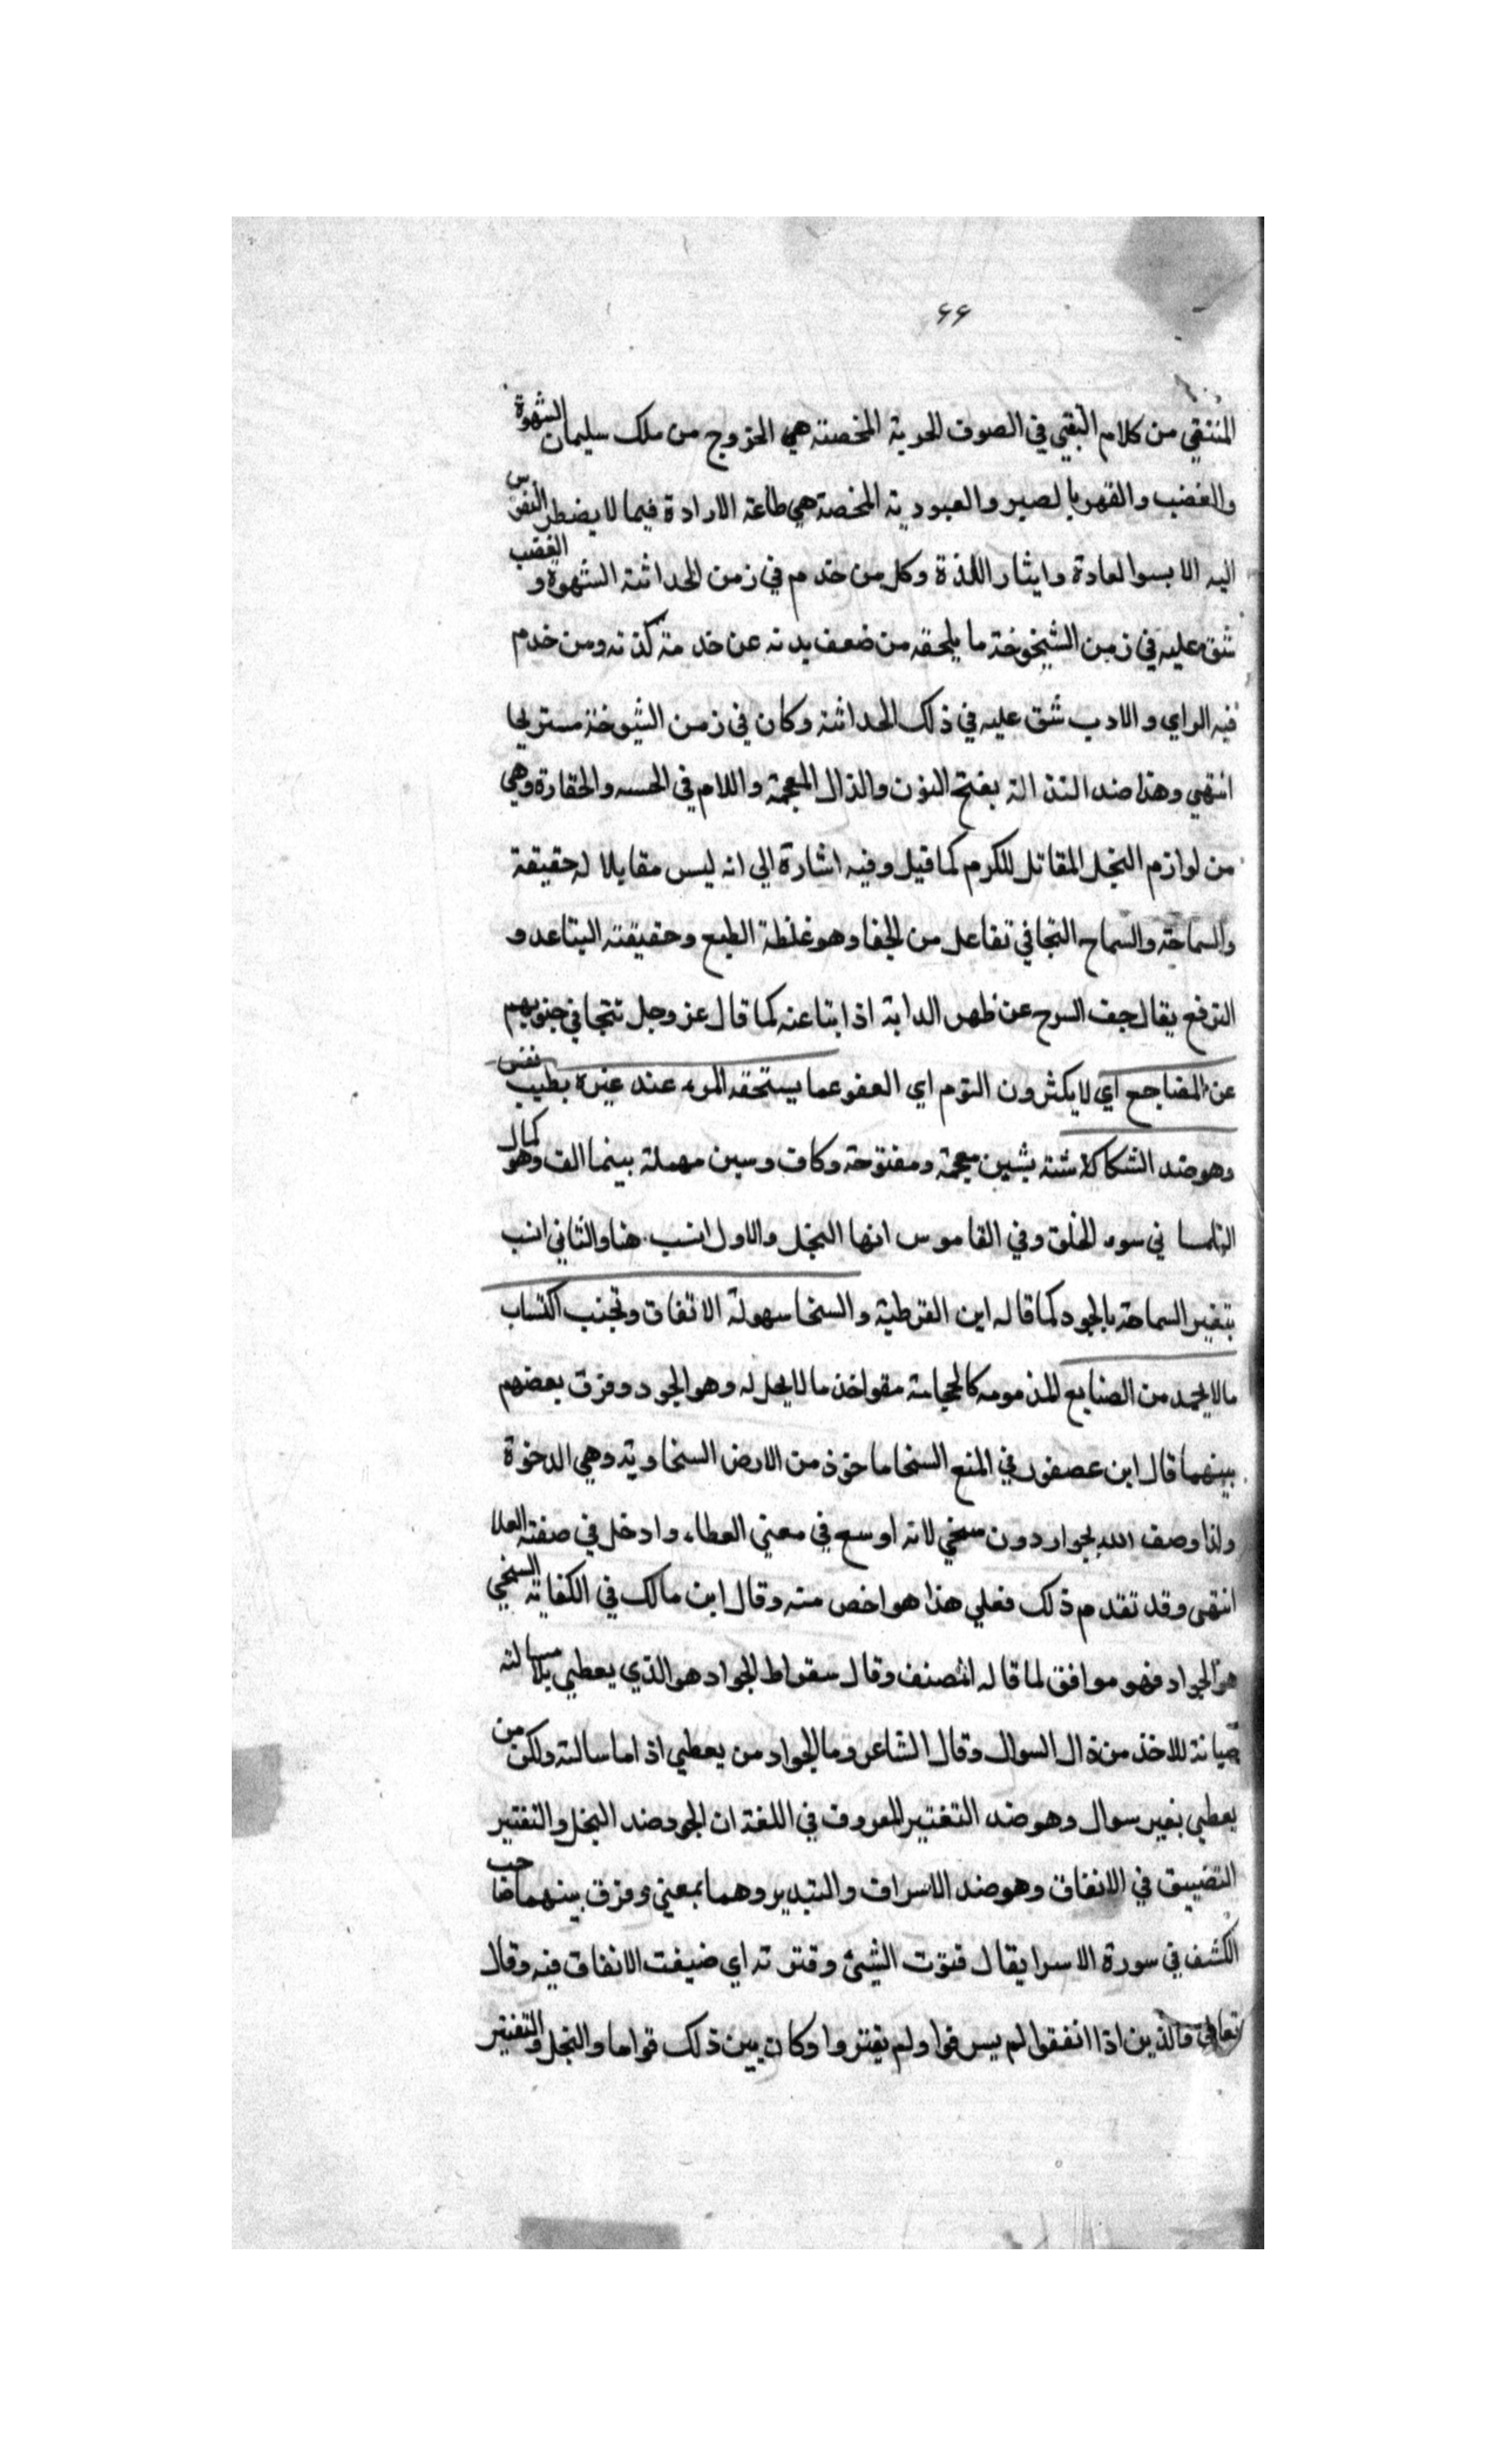 ٤٤
المنتقي من كلام التقي في الصوف الحرية المخصنة هي الخروج من ملك سليمان الشهوة
والغضب والقهر بالصبر والعبودية المخصة هي طاعة الارادة فيما لا يضطر النفوس
اليه الا بسوالعادة وايثار اللذة وكل من خدم في زمن الحداثة الشهوة و الغضب
شق عليه في زمن الشيخوخة ما يلحقه من ضعف بدنه عن خدمة كذته ومن خدم
فيه الراي والادب شق عليه في ذلك الحداثة وكان في زمن الشيوخة مستريحا
انتهي وهذا ضد النذالة بفتح النون والذال المعجمة واللام في الحسه والحقارة وهي
من لوازم البخل المقاتل للكرم كما قيل وفيه اشارة الي انه ليس مقابلا له حقيقة
والسماحة والسماح التجافي تفاعل من الجفا وهو غلظة الطبع وحقيقته البتاعد و
الترفع يقال جف السرح عن ظهر الدابة اذا بتاعنه كما قال عز وجل تتجافي جنوبهم
عن المضاجع اي لا يكثرون النوم اي العفو عما يستحقه المرء عند غيره بطيب نفس
وهو ضد الشكاكاشة بشين معجمة ومفتوحة وكاف وسين مهملة بينما الف وهو كمال
في سوء الخلق وفي القاموس انها البخل والاول انسب هنا والثاني انسب
بتغير السماحة بالجود كما قاله ابن القرطية والسخا سهولة الاتفاق وتجنب اكتساب
مالا يحمد من الصنايع المذمومه كالحجامة مقواخذ ما لا يحل له وهو الجود وفرق بعضهم
بينهما قال ابن عصفور في المنع السخا ماخوذ من الارض السخاوية وهي الدخوة
ولذا وصف الله بجواردون سخي لانه اوسع في معني العطاء وادخل في صفته العلا
انتهى وقد تقدم ذلك فعلي هذا هو اخص منه وقال ابن مالك في الكفاية السخي
هو الجواد فهو موافق لما قاله المصنف وقال سقراط الجواد هو الذي يعطي بلا مسالته
صيانة للاخذ من ذال السوال وقال الشاعر وما الجواد من يعطي اذا ما سالته ولكن من
يعطي بغير سوال وهو ضد التقتير المعروف في اللغة ان الجود ضد البخل والتقتير
التضييق في الانفاق وهو ضد الاسراف والتبدير وهما بمعني وفرق بينهما صاحب
الكشف في سورة الاسرا يقال قتوت الشيئ وقترته اي ضيفت الانفاق فيه وقال
تعالي والذين اذا انفقوا لم يسرفوا ولم يقتروا وكان بين ذلك قواما والبخل والتقتير